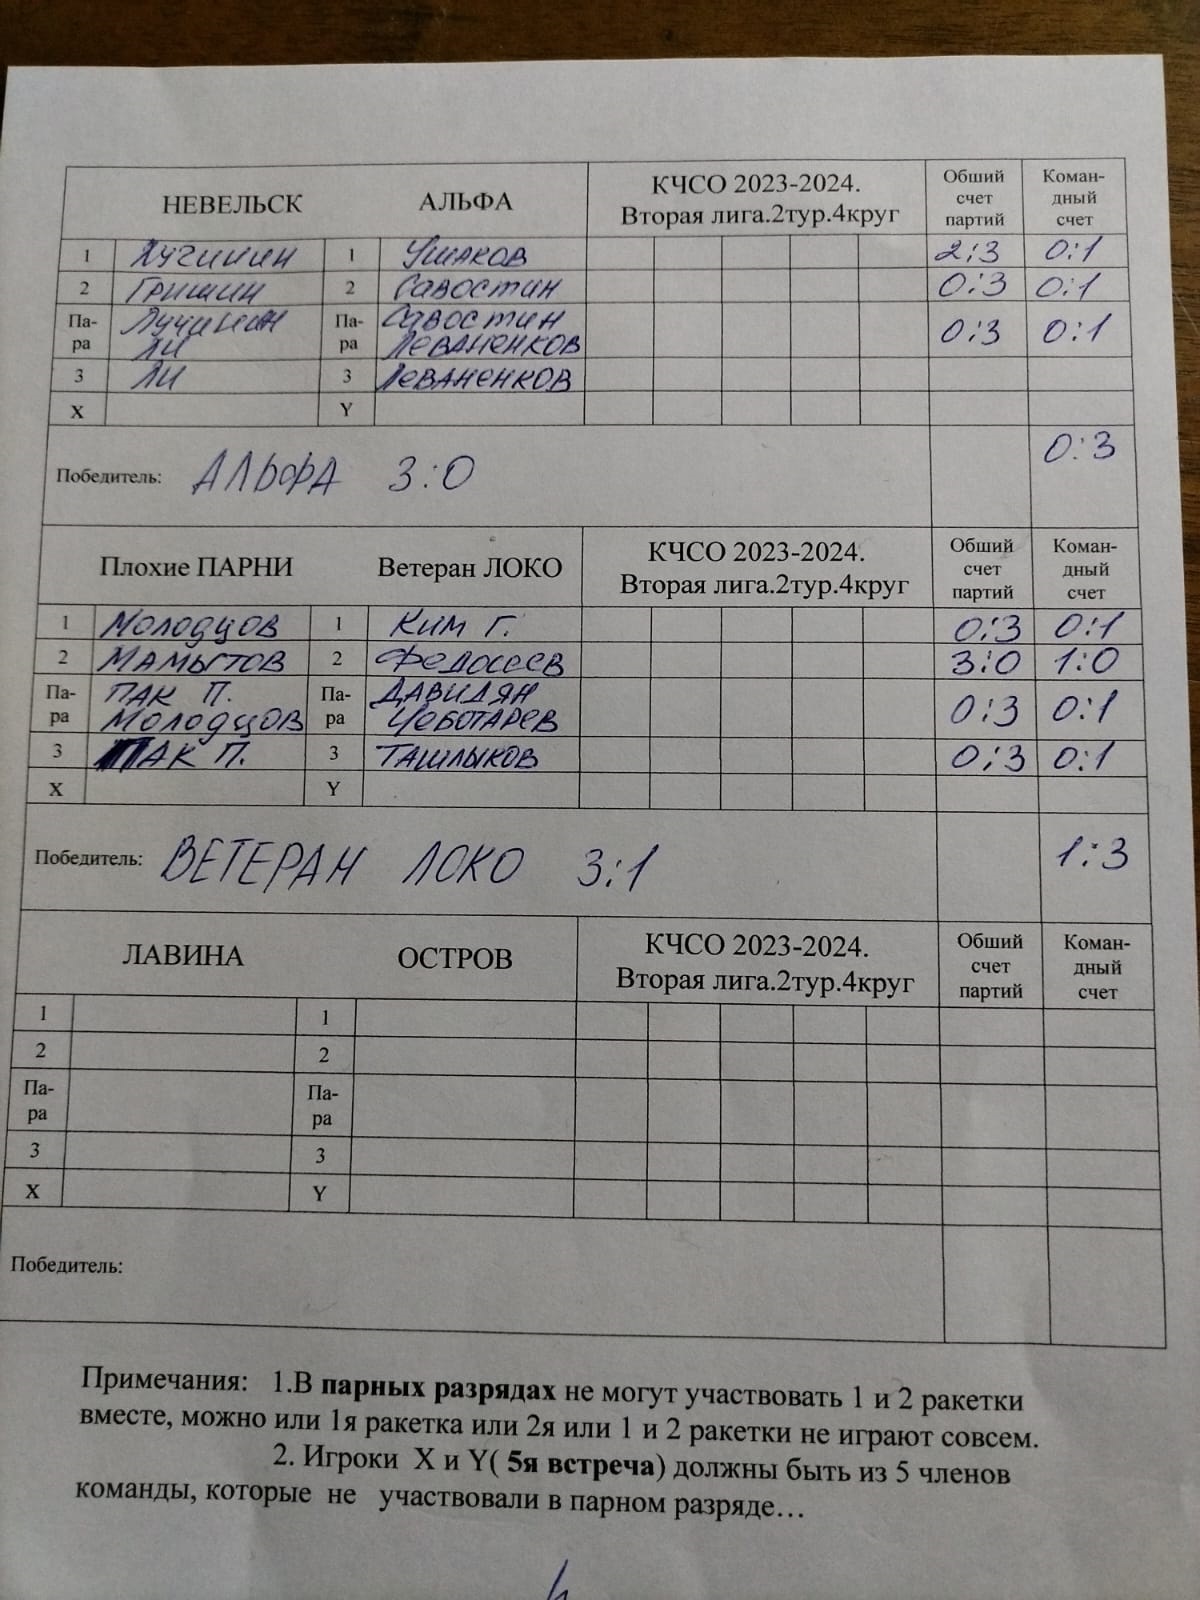 НЕВЕЛЬСК АЛЬФА КЧСО 2023-2024. Вторая лига.2тур.4круг Обший счет партий Коман-дный счет
1 Лучинин 1 Ушаков 2:3 0:1
2 Гришин 2 Савостин 0:3 0:1
Па-ра Лучинин Ли Па-ра Савостин Леваненков 0:3 0:1
3 Ли 3 Леваненков
X Y
0:3
Победитель: АЛЬФА 3:0
Плохие ПАРНИ Ветеран ЛОКО КЧСО 2023-2024. Вторая лига.2тур.4круг Обший счет партий Коман-дный счет
1 Молодцов 1 Ким Г. 0:3 0:1
2 Мамытов 2 Федосеев 3:0 1:0
Па-ра Пак П. Молодцов Па-ра Давидян Чеботарев 0:3 0:1
3 Пак П. 3 Ташлыков 0:3 0:1
X Y
Победитель: ВЕТЕРАН ЛОКО 3:1 1:3
ЛАВИНА ОСТРОВ КЧСО 2023-2024. Вторая лига.2тур.4круг Обший счет партий Коман-дный счет
1 1
2 2
Па-ра Па-ра
3 3
X Y
Победитель:
Примечания: 1.В парных разрядах не могут участвовать 1 и 2 ракетки
вместе, можно или 1я ракетка или 2я или 1 и 2 ракетки не играют совсем.
2. Игроки X и Y( 5я встреча) должны быть из 5 членов
команды, которые не участвовали в парном разряде…